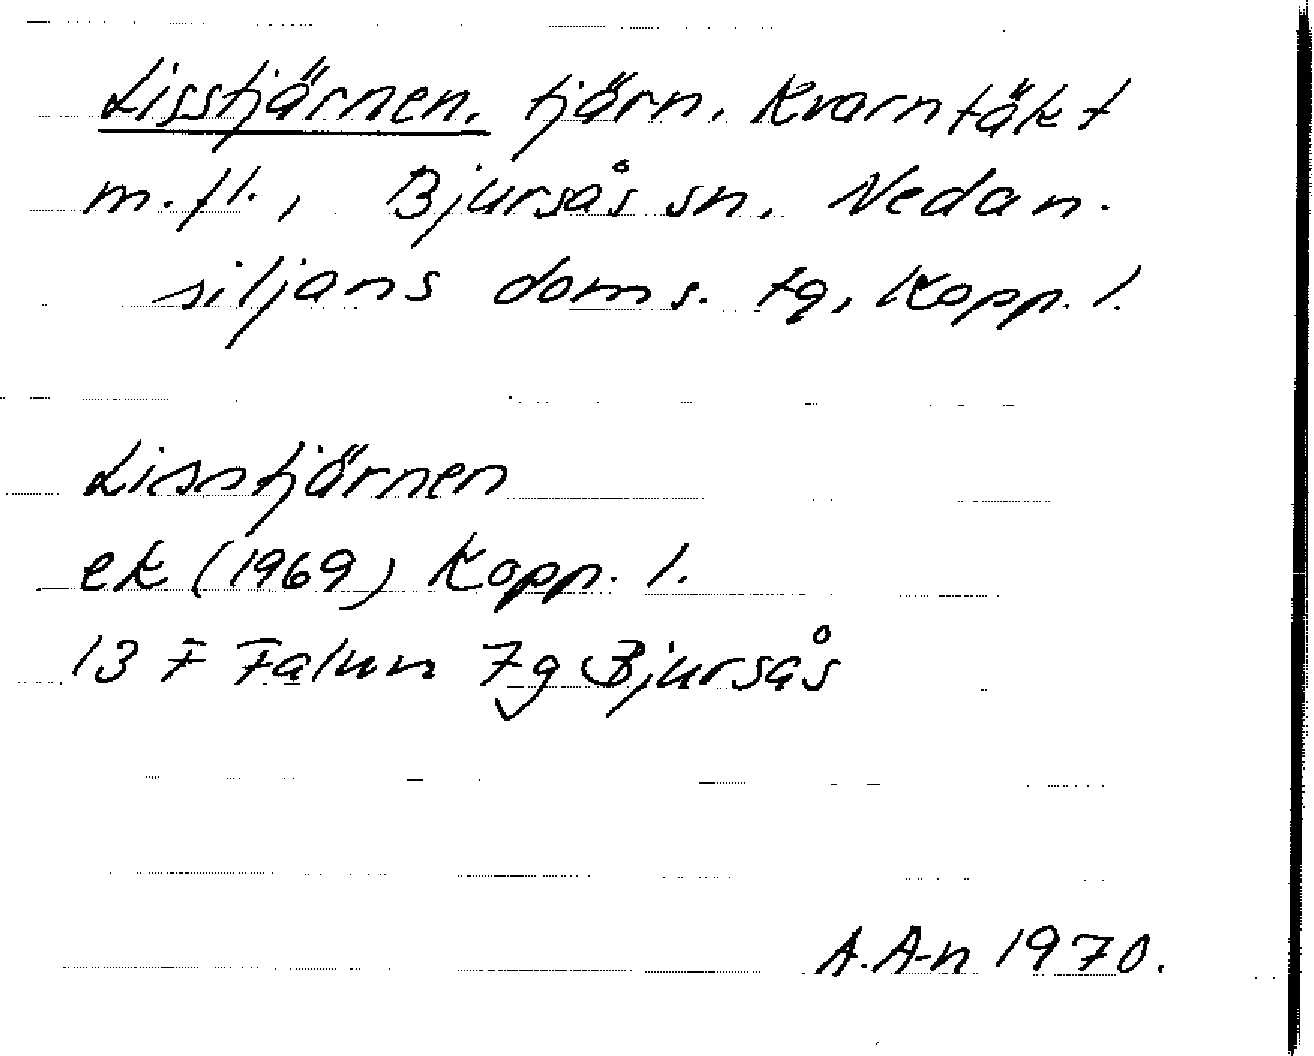 Lisstjärnen, tjärn, Kvarntäkt
m.fl., Bjursås sn, Nedan-
siljans doms. tg, Kopp. l.
Lisstjärnen
ek (1969) Kopp. l.
13 F Falun 7g Bjursås
A.A-n 1970.